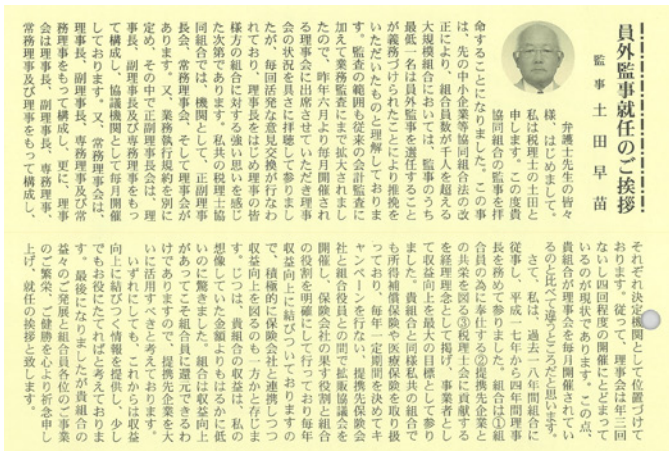 員外監事就任のご挨拶
監事 土田早苗
弁護士先生の皆々
様、はじめまして。
私は税理士の土田と
申します。この度貴
協同組合の監事を拝
命することになりました。この事
は、先の中小企業等協同組合法の改
正により、組合員数が千人を超える
大規模組合においては、監事のうち
最低一名は員外監事を選任すること
が義務づけられたことにより推挽を
いただいたものと理解しておりま
す。監査の範囲も従来の会計監査に
加えて業務監査にまで拡大されまし
たので、昨年六月より毎月開催され
る理事会に出席させていただき理事
会の状況を具さに拝聴して参りまし
たが、毎回活発な意見交換が行なわ
れており、理事長をはじめ理事の皆
様方の組合に対する強い思いを感じ
た次第であります。私共の税理士協
同組合では、機関として、正副理事
長会、常務理事会、そして理事会が
あります。又、業務執行規約を別に
定め、その中で正副理事長会は、理
事長、副理事長及び専務理事をもっ
て構成し、協議機関として毎月開催
しております。又、常務理事会は、
理事長、副理事長、専務理事及び常
務理事をもって構成し、更に、理事
会は理事長、副理事長、専務理事、
常務理事及び理事をもって構成し、
それぞれ決定機関として位置づけて
おります。従って、理事会は年三回
ないし四回程度の開催にとどまって
いるのが現状であります。この点、
貴組合が理事会を毎月開催されてい
るのと比べて違うところだと思います。
さて、私は、過去一八年間組合に
従事し、平成一七年から四年間理事
長を務めて参りました。組合は①組
合員の為に奉仕する②提携先企業と
の共栄を図る③税理士会に貢献する
を経理理念として掲げ、事業者とし
て収益向上を最大の目標として参り
ました。貴組合と同様私共の組合で
も所得補償保険や医療保険を取り扱
っており、毎年一定期間を決めてキ
ャンペーンを行ない、提携先保険会
社と組合役員との間で拡販協議会を
開催し、保険会社の果す役割と組合
の役割を明確にして行っており毎年
収益向上に結びついておりますの
で、積極的に保険会社と連携しつつ
収益向上を図るのも一方かと存じま
す。じつは、貴組合の収益は、私の
想像していた金額よりもはるかに低
いのに驚きました。組合は収益向上
があってこそ組合員に還元できるわ
けでありますので、提携先企業を大
いに活用すべきと考えております。
いずれにしても、これからは収益
向上に結びつく情報を提供し、少し
でもお役にたてればと考えておりま
す。最後になりましたが貴組合の
益々のご発展と組合員各位のご事業
のご繁栄、ご健勝を心より祈念申し
上げ、就任の挨拶と致します。